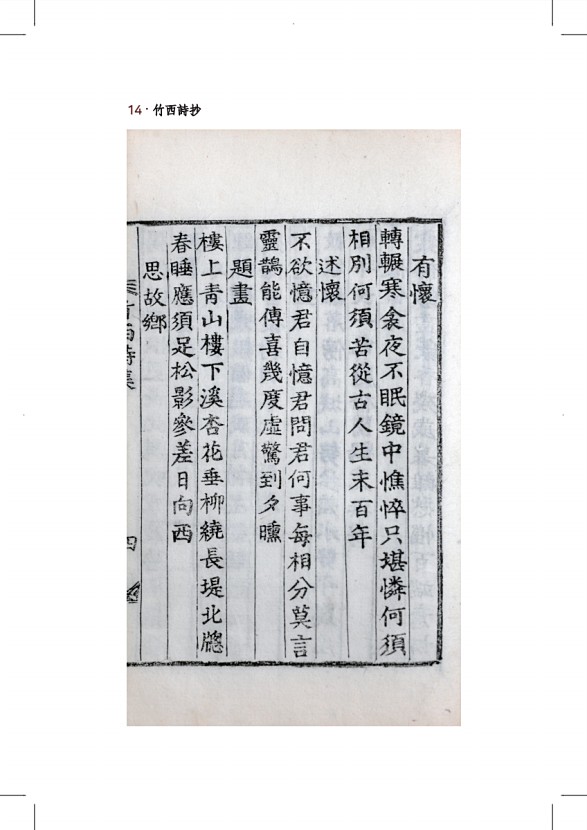 14 · 竹西詩抄
有懷
轉輾寒衾夜不眠鏡中憔悴只堪憐何須
相別何須苦從古人生未百年
述懷
不欲憶君自憶君問君何事每相分莫言
靈鵲能傳喜幾度虛驚到夕曛
題畫
樓上青山樓下溪杏花垂柳繞長堤北牕
春睡應須足松影參差日向西
思故鄉
竹西詩集
四